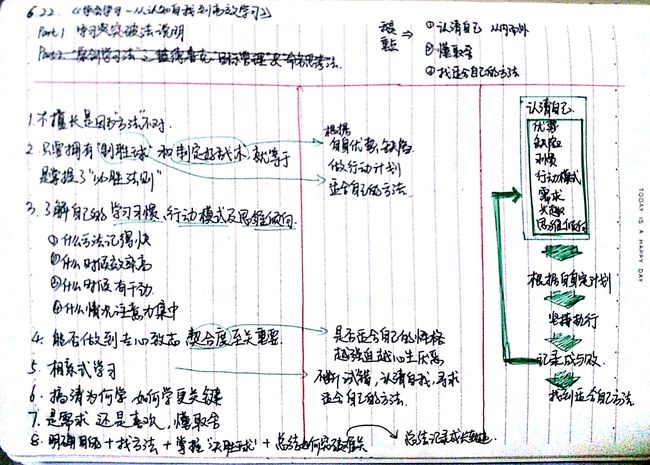 6.22. 《学会学习-从认知自我到高效学习》
Part 1 学习类突破法说明
目标管理 思考法.
重点 ⇒ ①认清自己 从内而外
②懂取舍
③找适合自己的方法
1. 不擅长是因为"方法"不对.
2. 只要拥有"制胜球"和制定好战术, 就等于
是掌握了"必胜法则"
根据
自身优势,缺陷
做行动计划
适合自己的方法.
3. 了解自己的学习习惯、行动模式及思维倾向.
①什么方法记得快
②什么时候效率高
③什么时候有干劲
④什么情况注意力集中
4. 能否做到专心致志 契合度至关重要.
是否适合自己的性格
越强迫越心生厌恶
5. 相亲式学习
不断试错,认清自我,寻求
适合自己的方法.
6. 搞清为何学 如何学更关键
7. 是需求 还是喜欢, 懂取舍
8. 明确目的 + 找方法 + 掌握"决胜球" + 总结如何突破
总结记录成长
认清自己
优势
缺陷
习惯
行动模式
需求
兴趣
思维倾向
根据自身定计划
坚持执行
记录成与败
找到适合自己方法
TODAY IS A HAPPY DAY